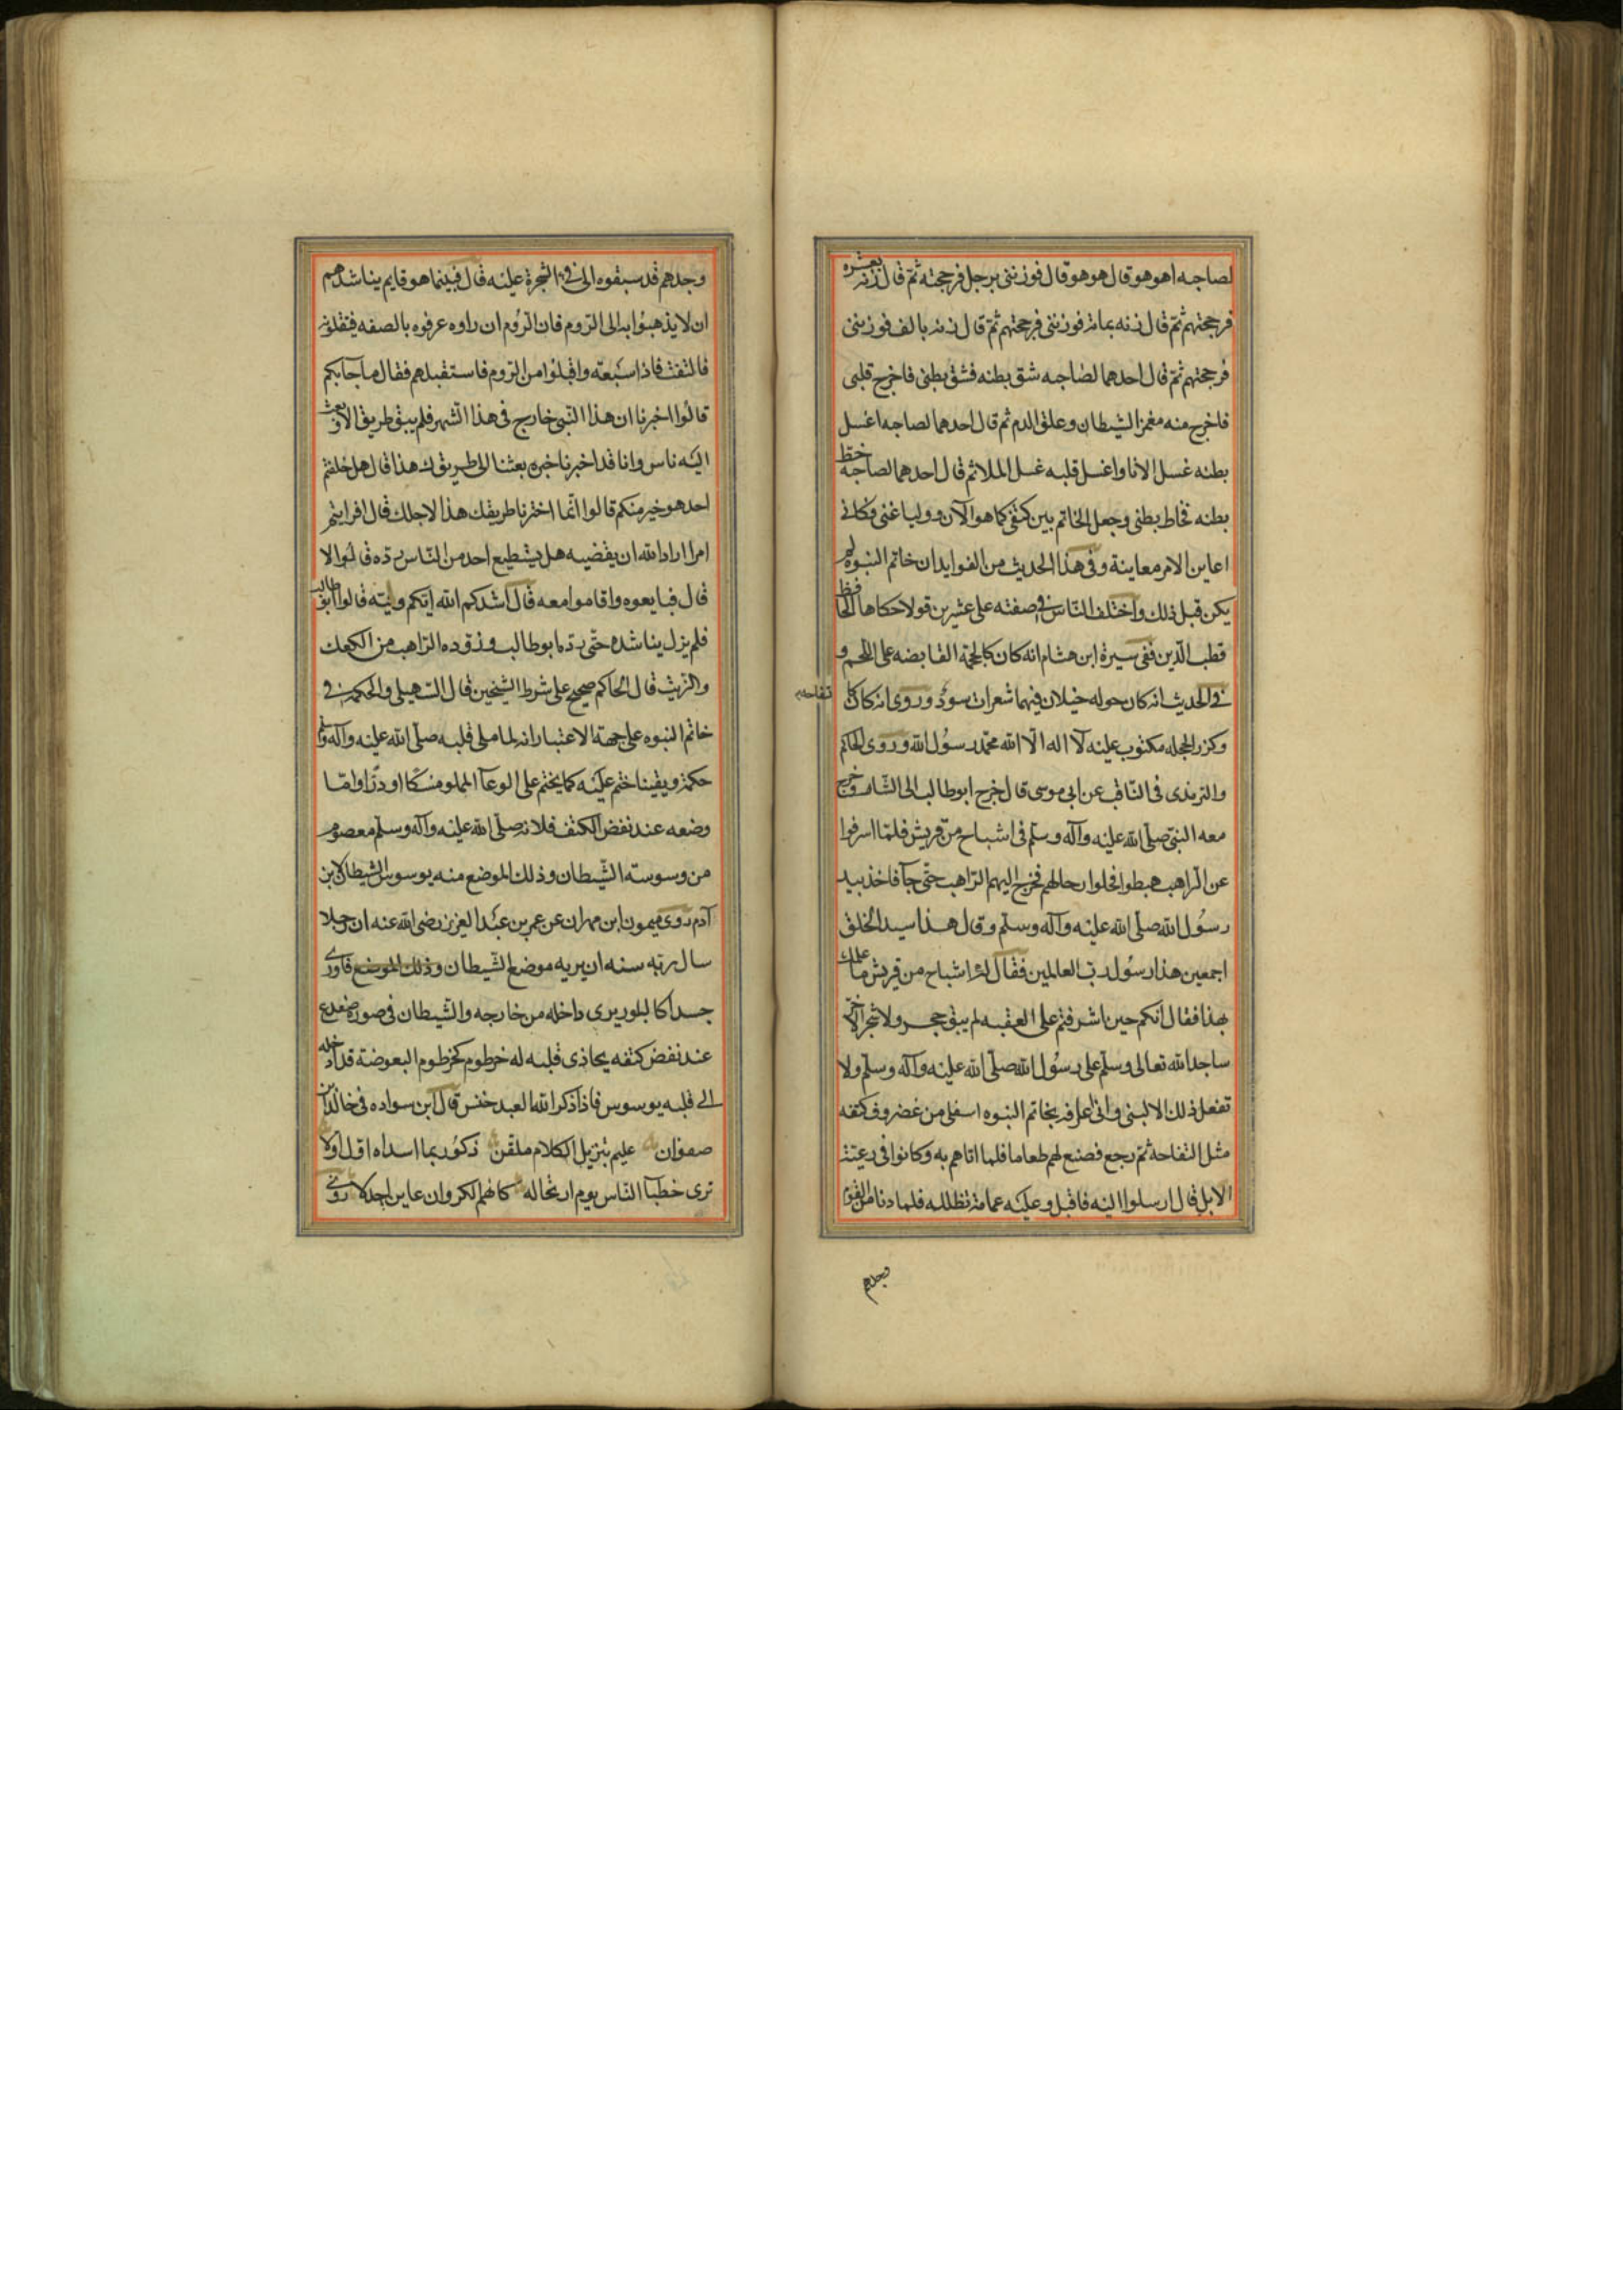 لصاحبه اهو هو قال هو هو قال فوزننى برجل فرجحته ثم قال زنه بعشره
فرجحتهم ثم قال زنه بمائة فوزننى فرجحتهم ثم قال زنه بالف فوزننى
فرجحتهم ثم قال احدهما لصاحبه شق بطنه فشق بطنى فاخرج قلبى
فاخرج منه مغمز الشيطان وعلق الدم ثم قال احدهما لصاحبه اغسل
بطنه غسل الانا واغسل قلبه غسل الملا ثم قال احدهما لصاحبه خط
بطنه فخاط بطنى وجعل الخاتم بين كتفى كما هو الآن ووليا عنى فكانى
اعاين الامر معاينة وفى هذا الحديث من الفوايد ان خاتم النبوه لم
يكن قبل ذلك واختلف الناس فى صفته على عشرين قولا حكاها الحافظ
قطب الدين ففى سيرة ابن هشام انه كان كالمحجمة القابضه على اللحم و
فى الحديث انه كان حوله خيلان فيهما شعرات سود وروى انه كان كا
تفاحه
وكزر الحجله مكتوب عليه لآ اله الا الله محمد رسول الله وروى الحاكم
والترمذى فى المناقب عن ابى موسى قال خرج ابو طالب الى الشام وخرج
معه النبى صلى الله عليه وآله وسلم فى اشياخ من قريش فلما اشرفوا
عن الراهب هبطوا فحلوا رحالهم فخرج اليهم الراهب حتى جآ فاخذ بيد
رسول الله صلى الله عليه وآله وسلم وقال هذا سيد الخلق
اجمعين هذا رسول رب العالمين فقال له اشياخ من قريش ما علمك
بهذا فقال انكم حين اشرفتم على العقبه لم يبق حجر ولا شجر الا خر
ساجدا لله تعالى وسلم على رسول الله صلى الله عليه وآله وسلم ولا
تفعل ذلك الا لنبى وانى اعرفه بخاتم النبوه اسفل من غضروف كتفه
مثل التفاحه ثم رجع فصنع لهم طعاما فلما اتاهم به وكانوا فى رعيته
الابل قال ارسلوا اليه فاقبل وعليه عمامة تظلله فلما دنا من القوم
وجدهم
وجدهم قد سبقوه الى فى الشجرة عليه قال فبينما هو قايم يناشدهم
ان لا يذهبوا به الى الروم فان الروم ان راوه عرفوه بالصفه فيقتلونه
فالتفت فاذا سبعة واقبلوا من الروم فاستقبلهم فقال ما جآ بكم
قالوا اخبرنا ان هذا النبى خارج فى هذا الشهر فلم يبق طريق الا وبعث
اليه ناس وانا قد اخبرنا خبره بعثنا الى طريقك هذا قال هل خلفتم
احد هو خير منكم قالوا انما اخترنا طريقك هذا لاجلك قال افرايتم
امرا اراد الله ان يقضيه هل يستطيع احد من الناس رده قالوا لا
قال فبايعوه واقاموا معه قال انشدكم الله ايكم وليته قالوا ابو طالب
فلم يزل يناشده حتى رده ابو طالب وزوده الراهب من الكعك
والزيت قال الحاكم صحيح على شرط الشيخين قال السهيلى والحكمة فى
خاتم النبوه على جهة الاعتبار انه لما ملى قلبه صلى الله عليه وآله وسلم
حكمة ويقينا ختم عليه كما يختم على الوعآ المملو مسكا او درا واما
وضعه عند نغض الكتف فلانه صلى الله عليه وآله وسلم معصوم
من وسوسته الشيطان وذلك الموضع منه يوسوس الشيطان لابن
آدم روى ميمون ابن مهران عن عمر بن عبد العزيز رضى الله عنه ان رجلا
سال ربه سنه ان يريه موضع الشيطان وذلك الموضع فاورى
جسدا كالبلور يرى داخله من خارجه والشيطان فى صورة ضفدع
عند نغض كتفه يحاذى قلبه له خرطوم كخرطوم البعوضة قد ادخله
الى قلبه يوسوس فاذا ذكر الله العبد خنس قال ابن سواده فى خالد ابن
صفوان عليم بتنزيل الكلام ملقن ذكور بما اسداه اول اولا
ترى خطبآ الناس يوم ارتجاله كانهم الكروان عاين اجدلا روى